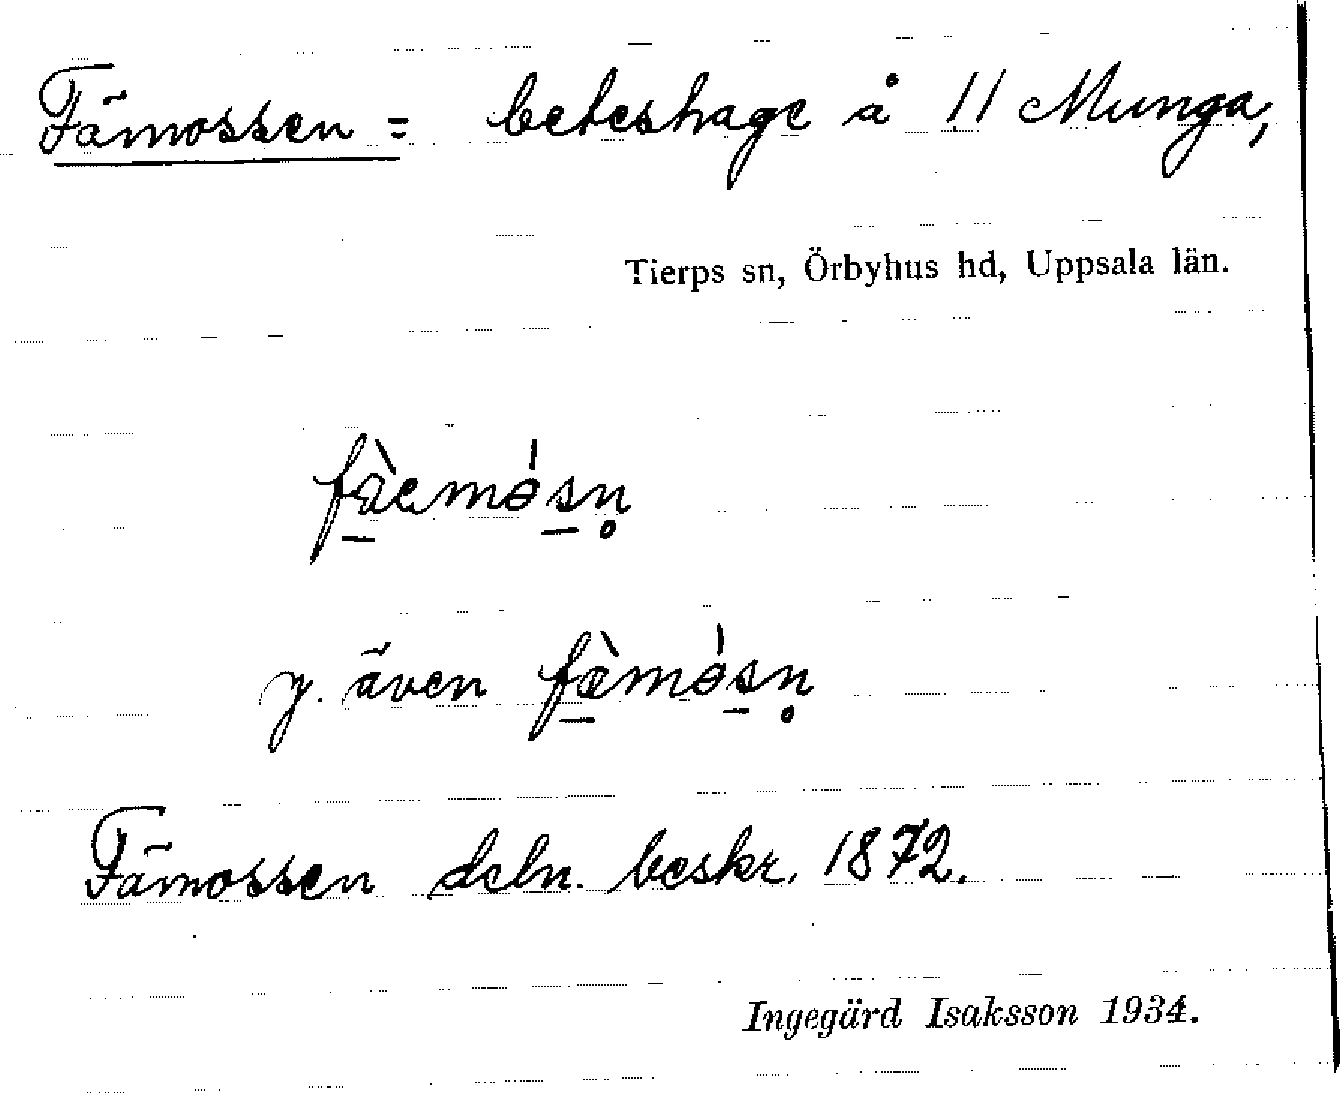 Fämossen = beteshage å 11 Munga,
Tierps sn, Örbyhus hd, Uppsala län.
fæ̀emǝ́sn̥
y. även fæ̀mǝ́sn̥
Fämossen deln. beskr. 1872.
Ingegärd Isaksson 1934.